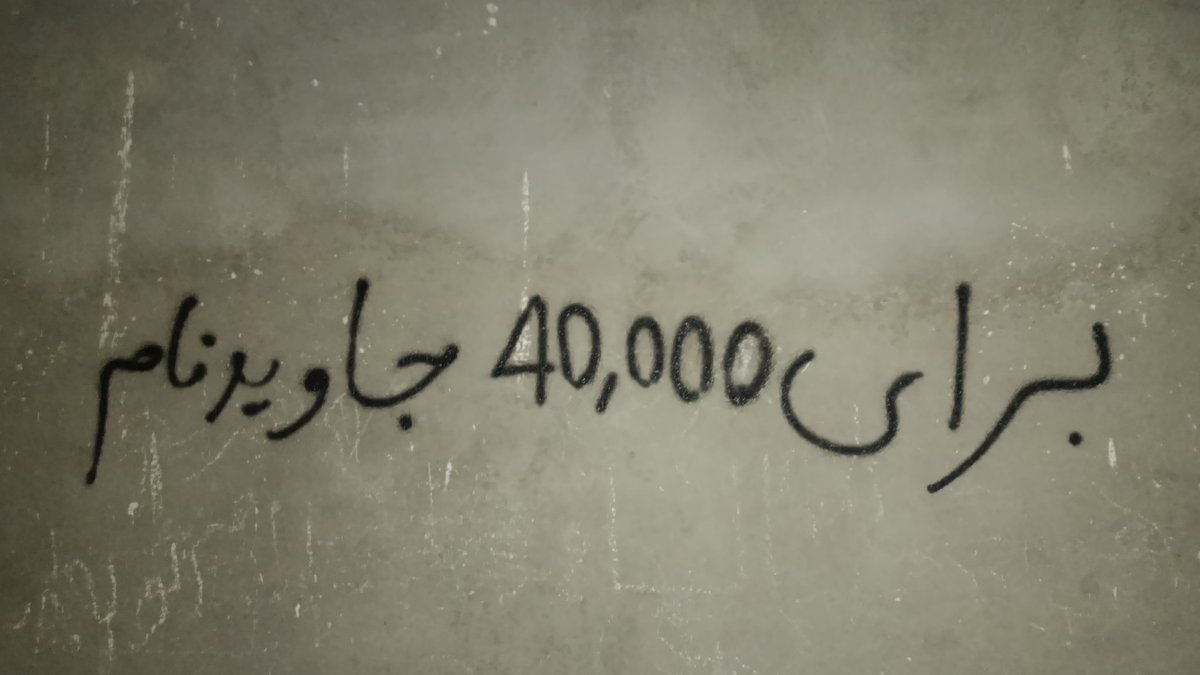 برای 40,000 جاویدنام